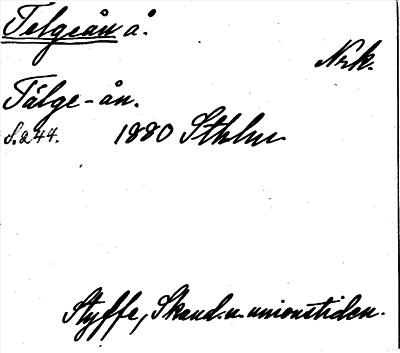 Telgeån å.
Nrk.
Tälge-ån.
S. 244. 1880 Sthlm
Styffe, Skand. u. unionstiden.